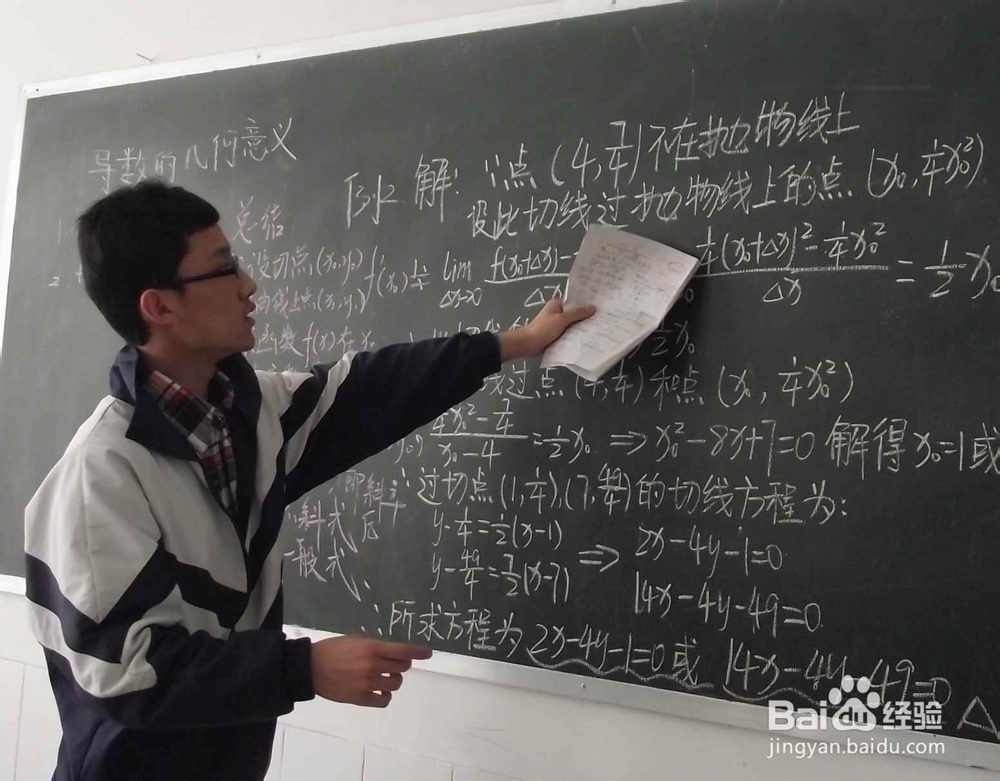 导数的几何意义
总结
设切点(x₀,y₀)
曲线上点(x₁,y₁)
函数f(x)在x₀
即斜率
点斜式
一般式
解:∵点(4,7/4)不在抛物线上
设此切线过抛物线上的点(x₀,1/4x₀²)
f'(x₀)= lim Δx→0 f(x₀+Δx)- Δx 1/4(x₀+Δx)²-1/4x₀² / Δx = 1/2x₀
1/2x₀
线过点(4,7/4)和点(x₀,1/4x₀²)
1/4x₀²-7/4 / x₀-4 =1/2x₀ ⇒ x₀²-8x+7=0 解得x₀=1或
∴过切点(1,1/4),(7,49/4)的切线方程为:
y-1/4=1/2(x-1)
y-49/4=7/2(x-7)
⇒ 2x-4y-1=0
14x-4y-49=0
∴所求方程为2x-4y-1=0或14x-4y-49=0
Baidu经验
jingyan.baidu.com